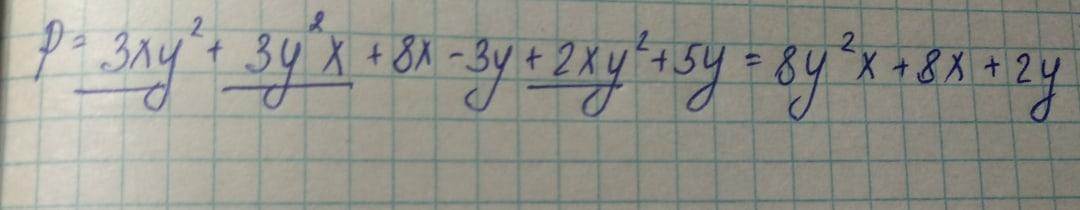 P = 3xy² + 3y²x + 8x - 3y + 2xy² + 5y = 8y²x + 8x + 2y